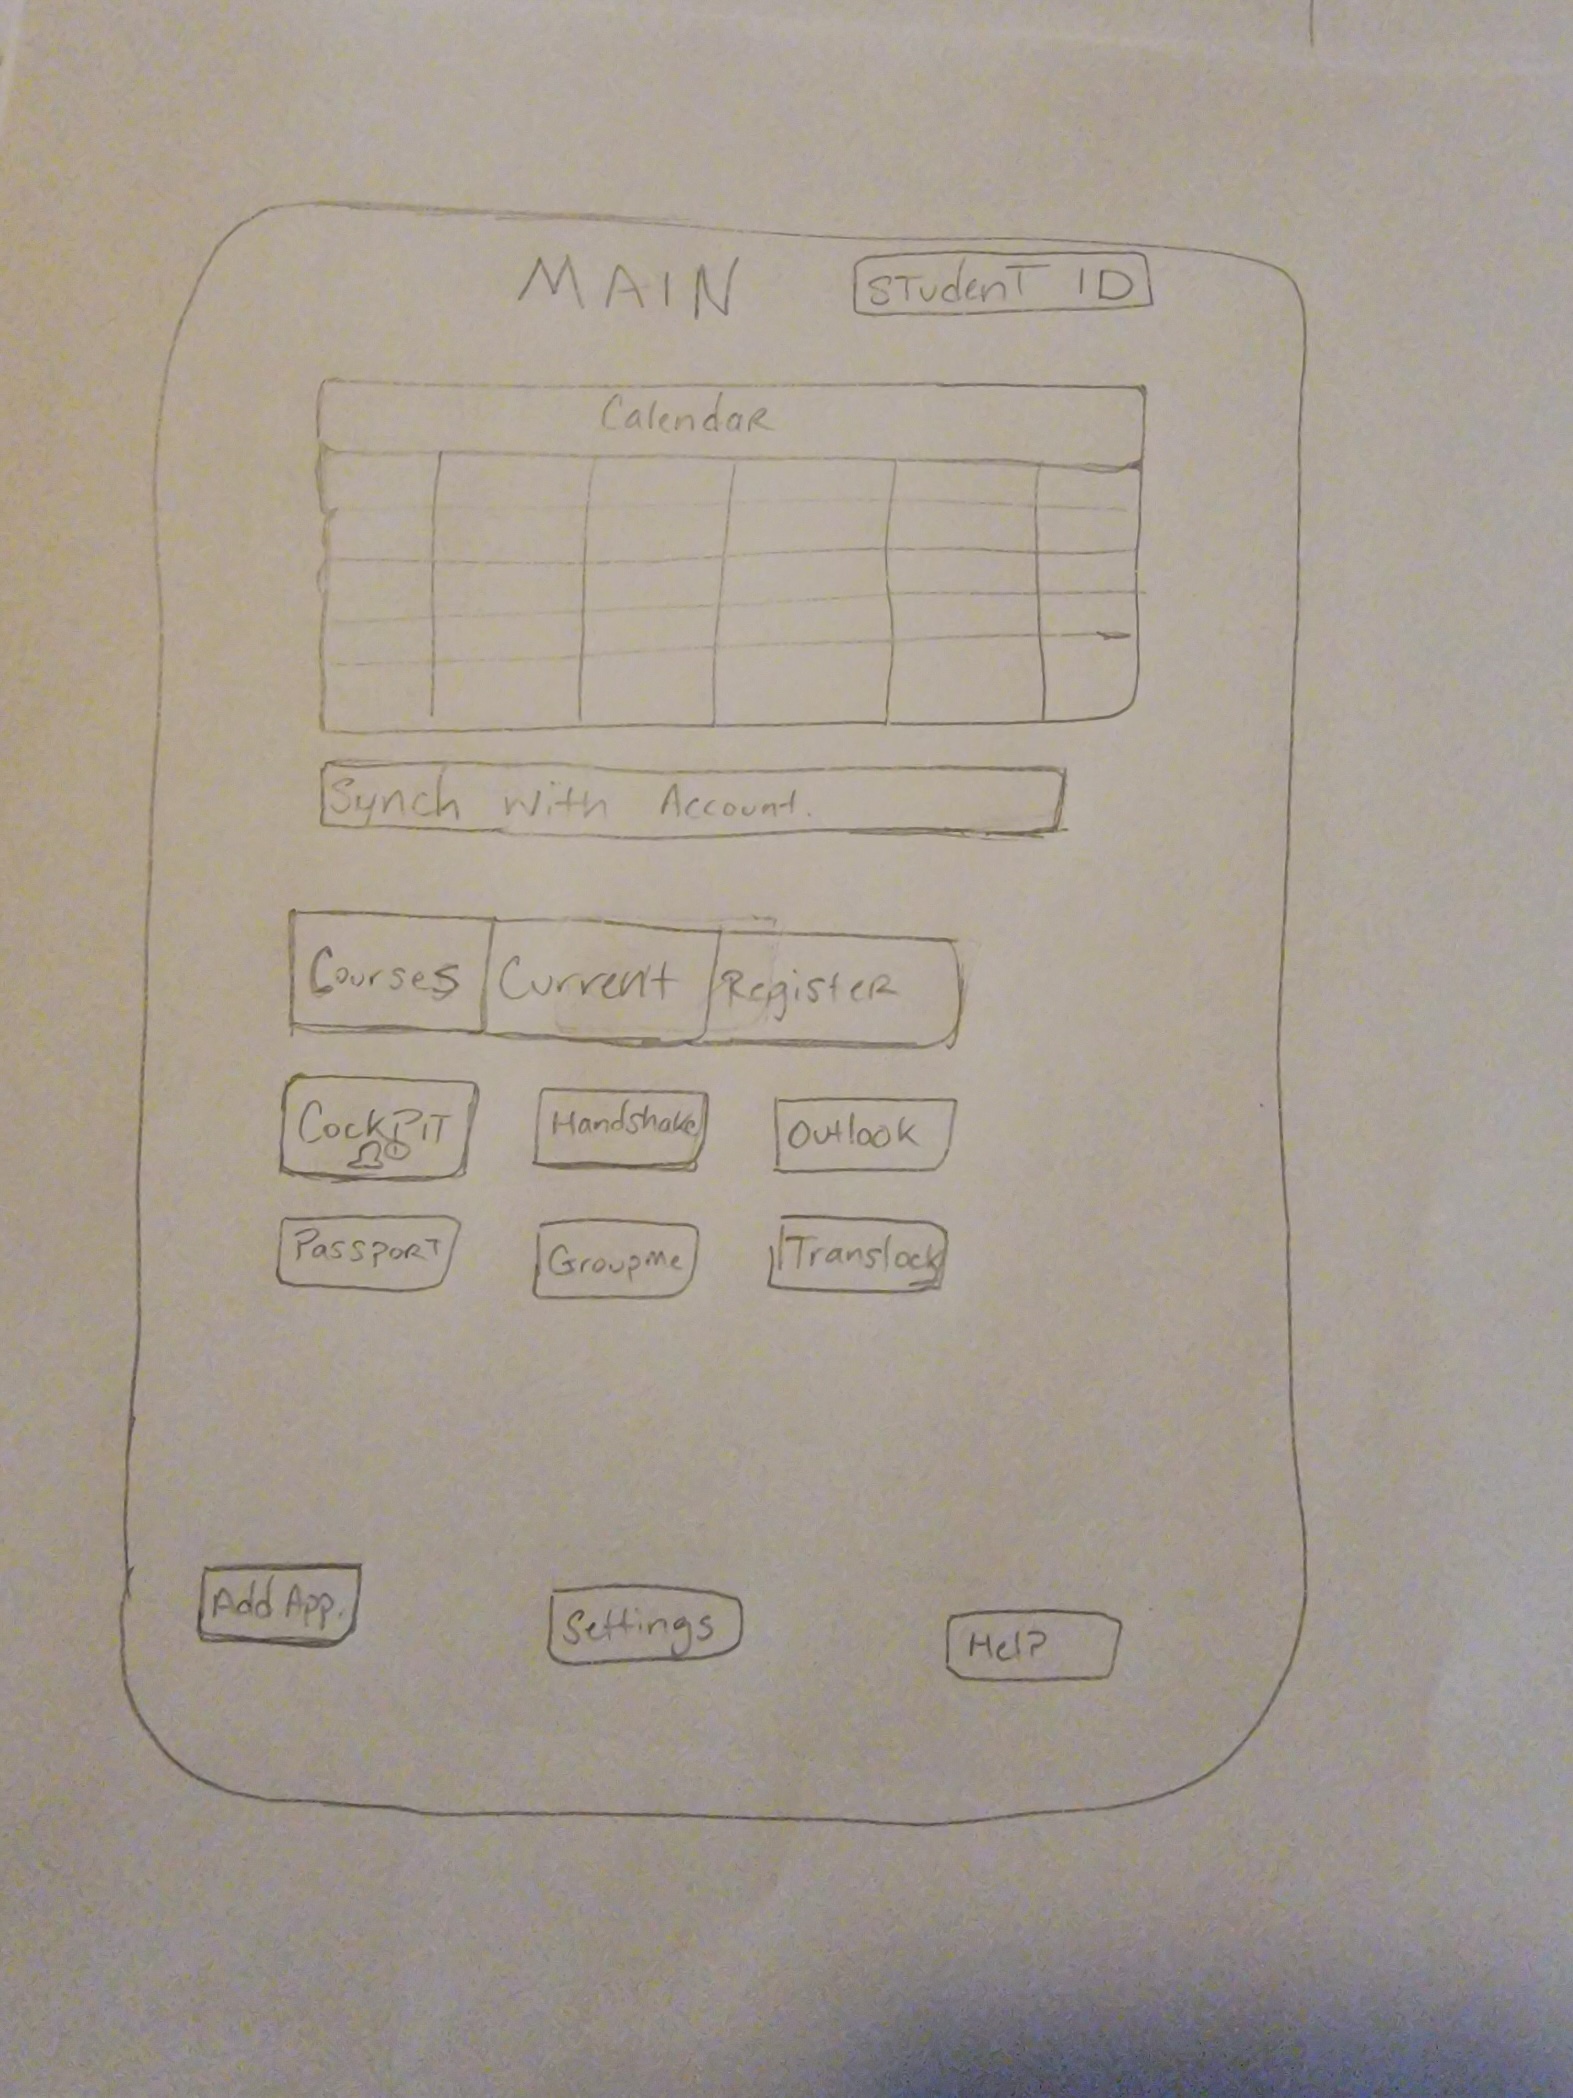 MAIN STudenT ID
CalendaR
Synch with Account.
Courses Current RegisteR
CockPiT Handshake Outlook
PassPoRT Groupme Translock
Add App. Settings Help